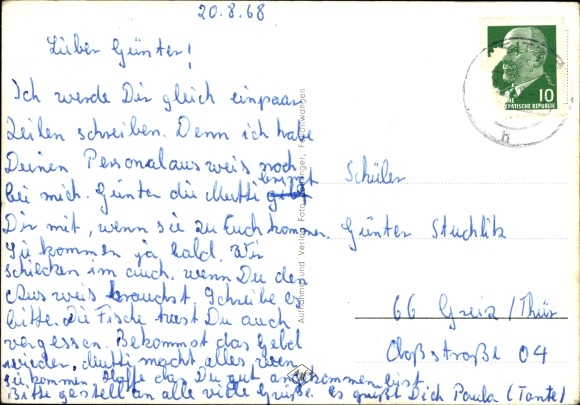 20.8.68
Lieber Günter!
Ich werde Dir gleich einpaar
Zeilen schreiben. Denn ich habe
Deinen Personalausweis noch
bei mich. Günter die Mutti bringt
Dir mit, wenn sie zu Euch kommen.
Sie kommen ja bald. Wir
schicken im auch. wenn Du den
Ausweis brauchst. Schreibe es
bitte. Die Fische hast Du auch
vergessen. Bekommst das Geld
wieder, Mutti macht alles, wen
sie kommen. Hoffe das Du gut ankommen bist
Bitte gestell an alle viele Grüße. Es grüßt Dich Paula (Tante)
Schüler
Günter Stuchlik
66 Greiz/Thür
Oloßstraße 04
Aufnahme und Verlag Foto
10
PATISCHE REPUBLIK